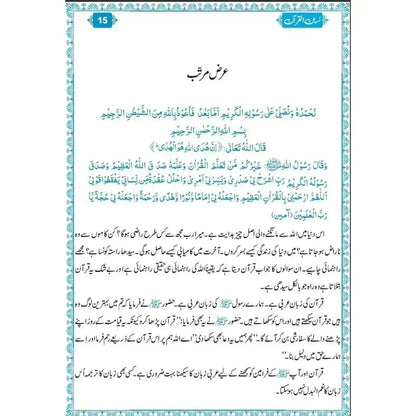 لسان القرآن
15
عرض مرتب
نَحْمَدُهٗ وَنُصَلِّیْ عَلٰی رَسُوْلِهِ الْکَرِیْمِ اَمَّا بَعْدُ فَاَعُوْذُ بِاللّٰهِ مِنَ الشَّیْطٰنِ الرَّجِیْمِ
بِسْمِ اللّٰهِ الرَّحْمٰنِ الرَّحِیْمِ
قَالَ اللّٰهُ تَعَالٰی: (اِنَّ هُدَی اللّٰهِ هُوَ الْهُدٰی)
وَقَالَ رَسُوْلُ اللّٰهِ ﷺ خَیْرُکُمْ مَنْ تَعَلَّمَ الْقُرْاٰنَ وَعَلَّمَهٗ صَدَقَ اللّٰهُ الْعَظِیْمُ وَصَدَقَ
رَسُوْلُهُ الْکَرِیْمُ رَبِّ اشْرَحْ لِیْ صَدْرِیْ وَیَسِّرْ لِیْ اَمْرِیْ وَاحْلُلْ عُقْدَةً مِّنْ لِّسَانِیْ یَفْقَهُوْا قَوْلِیْ
اَللّٰهُمَّ ارْحَمْنِیْ بِالْقُرْاٰنِ الْعَظِیْمِ وَاجْعَلْهُ لِیْ اِمَامًا وَّنُوْرًا وَّهُدًی وَّرَحْمَةً وَاجْعَلْهُ لِیْ حُجَّةً یَا
رَبَّ الْعٰلَمِیْنَ (آمین)
اس دنیا میں اللہ سے مانگنے والی اصل چیز ہدایت ہے۔ میرا رب مجھ سے کس طرح راضی ہوگا؟ کن کاموں سے وہ
ناراض ہو جاتا ہے؟ میں دنیا کی زندگی کیسے بسر کروں۔ آخرت میں کامیابی کیسے حاصل ہوگی۔ سیدھا راستہ کونسا ہے؟ مجھے
راہنمائی چاہیے۔ ان سوالوں کا جواب قرآن دیتا ہے کہ یقیناً اللہ کی راہنمائی ہی حقیقی راہنمائی ہے اور بے شک یہ قرآن
بتلاتا ہے وہ راہ جو بالکل سیدھی ہے۔
قرآن کی زبان عربی ہے۔ ہمارے رسول ﷺ کی زبان عربی ہے۔ حضور ﷺ نے فرمایا کہ تم میں بہترین لوگ وہ
ہیں جو قرآن سیکھتے ہیں اور اس کو سکھاتے ہیں۔ حضور ﷺ نے یہ بھی فرمایا: ’’قرآن پڑھا کرو کیونکہ یہ قیامت کے روز اپنے
پڑھنے والے کا سفارشی بن کر آئے گا۔‘‘ پھر ہمیں یہ دعا بھی سکھا دی ’’اے اللہ ہم پر اس قرآن کے ذریعے رحم فرما اور اسے
ہمارے حق میں دلیل بنا۔‘‘
قرآن اور آپ ﷺ کے فرامین کو سمجھنے کے لیے عربی زبان کا سیکھنا بہت ضروری ہے۔ کسی بھی زبان کا ترجمہ اُس
زبان کا نعم البدل نہیں ہو سکتا۔